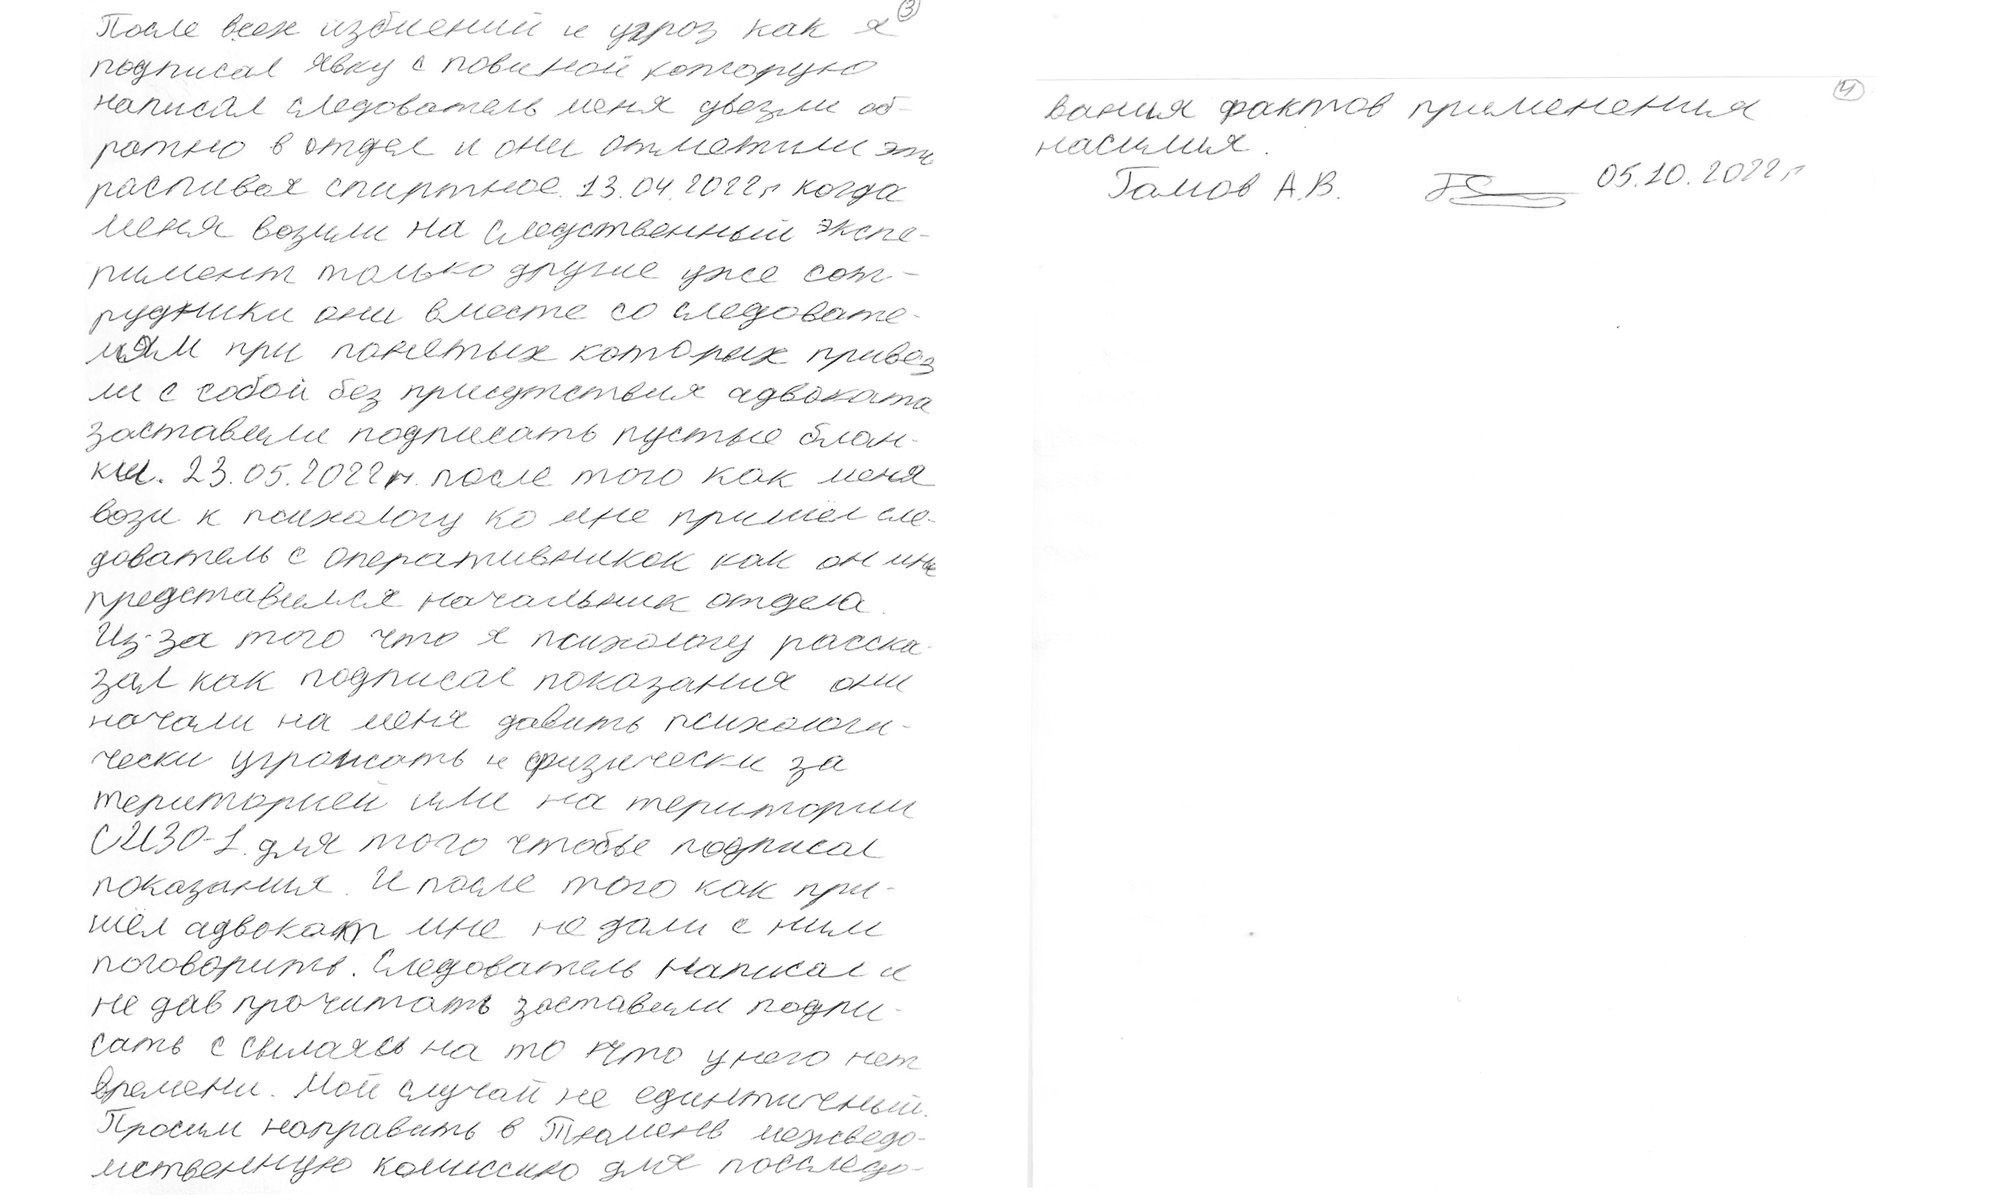 3
После всех избиений и угроз как я
подписал явку с повиной которую
написал следователь меня двезли об-
ратно в отдел и они отметили это
распивая спиртное. 13.04.2022г когда
меня возили на следственный экспе-
римент только другие уже сот-
рудники они вместе со следовате-
лям при понетых которых привез
ли с собой без присутствия адвоката
заставили подписать пустые блан-
ки. 23.05.2022г. после того как меня
вози к психологу ко мне пришёл сле-
дователь с оперативникок как он мне
представился начальник отдела.
Из-за того что я психологу расска-
зал как подписал показания они
начали на меня давить психологи-
чески угрожать и физически за
територией или на територии
СИЗО-1 для того чтобы подписал
показания. И после того как при-
шёл адвокат мне не дали с ним
поговорить. Следователь написал и
не дав прочитать заставили подпи-
сать с сылаясь на то что у него нет
времени. Мой случай не единтичный.
Просим направить в Тюмень межведо-
мственную комиссию для последо-
4
вания фактов применения
насилия.
Гамов А.В. 05.10.2022г